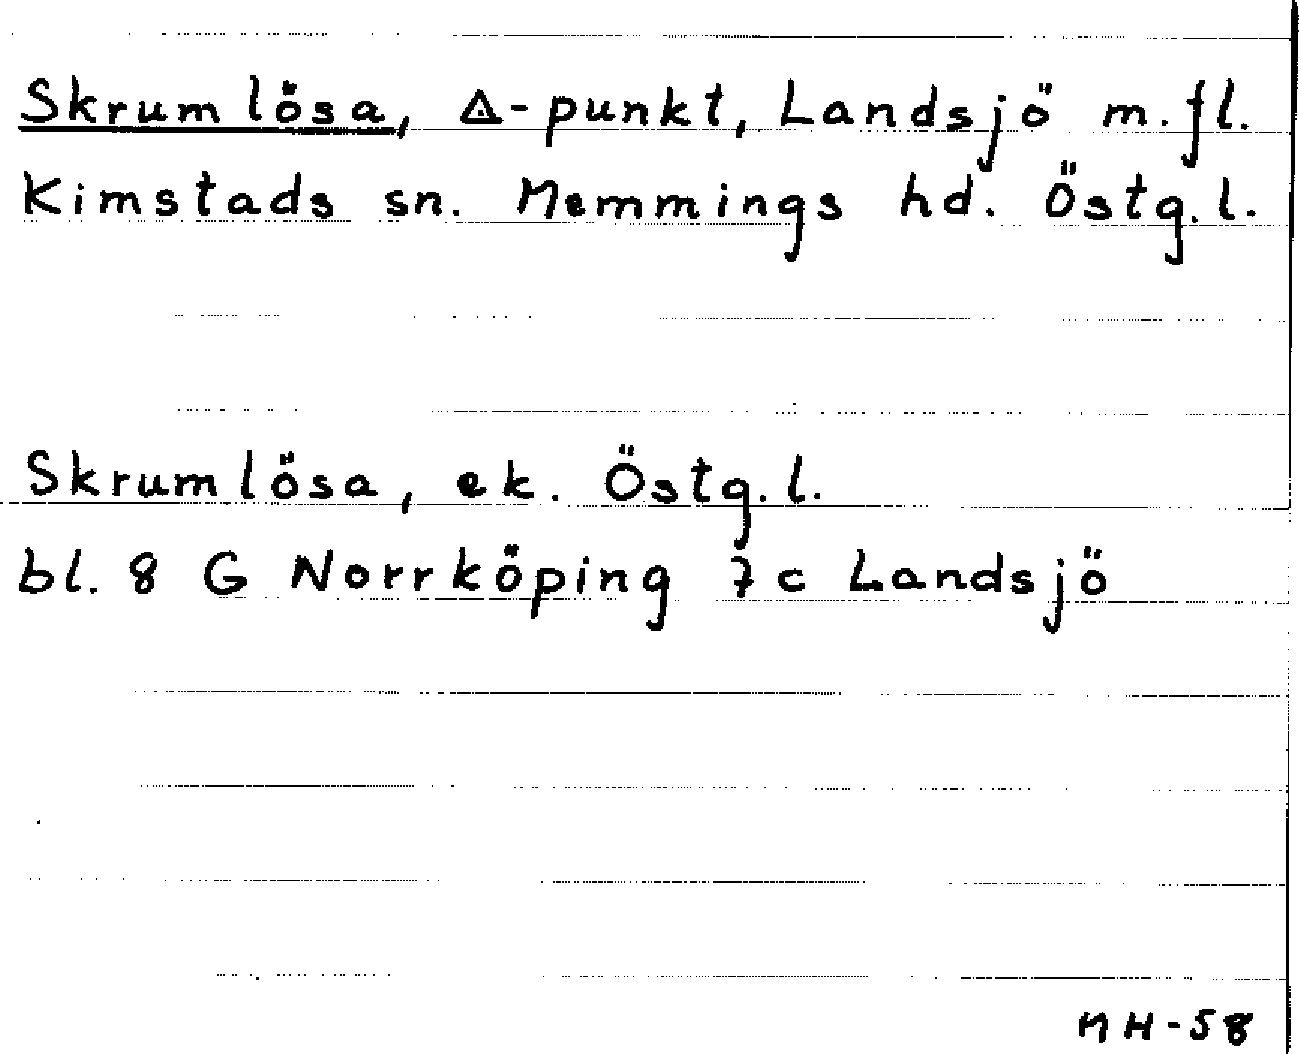 Skrumlösa, △-punkt, Landsjö m.fl.
Kimstads sn. Memmings hd. Östg.l.
Skrumlösa, ek. Östg.l.
bl. 8 G Norrköping 7c Landsjö
MH-58